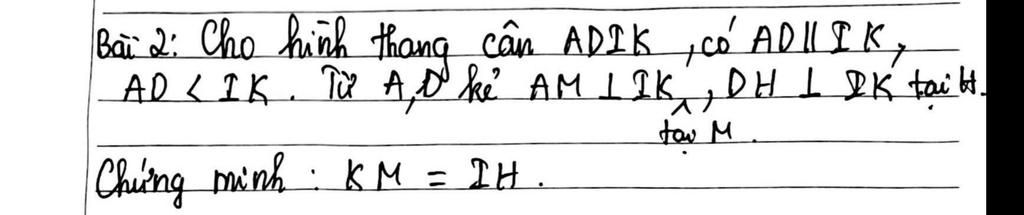 Bài 2: Cho hình thang cân ADIK, có AD∥IK,
AD < IK. Từ A,D kẻ AM ⊥ IK, DH ⊥ IK tại H.
tại M.
Chứng minh: KM = IH.